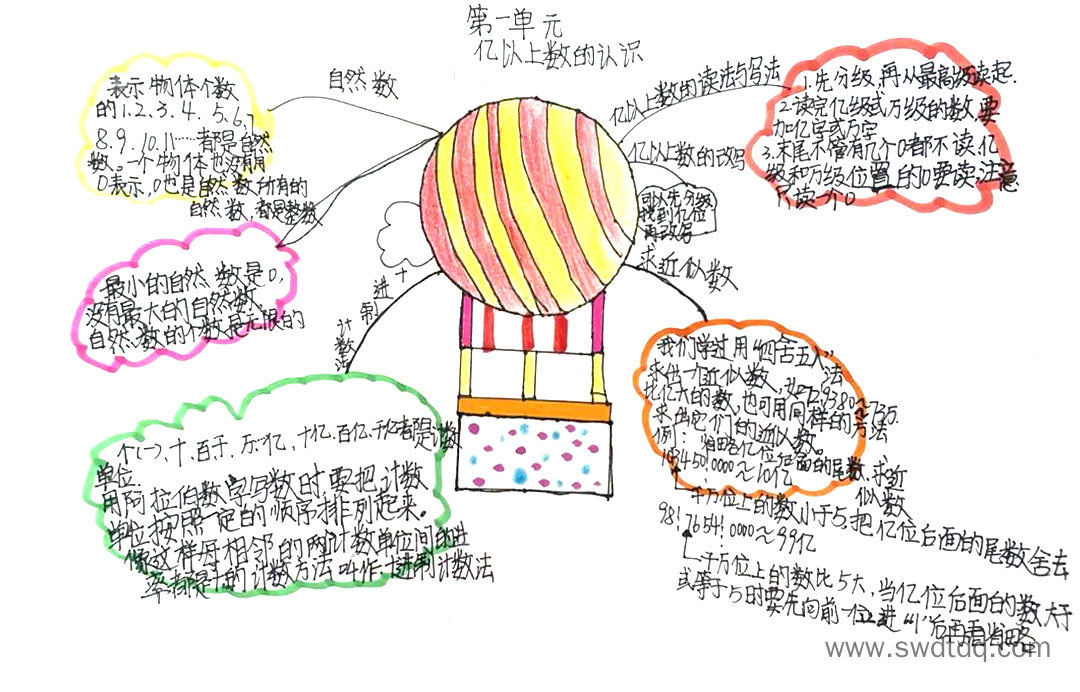 第一单元
亿以上数的认识
自然数
表示物体个数
的1.2.3.4.5.6.7
8.9.10.11……都是自然
数。一个物体也没有用
0表示,0也是自然数,所有的
自然数,都是整数
最小的自然数是0,
没有最大的自然数,
自然数的个数是无限的
十进制计数法
个(一)、十、百、千、万…亿、十亿、百亿、千亿都是计数
单位
用阿拉伯数字写数时要把计数
单位按照一定的顺序排列起来。
像这样每相邻的两计数单位间的进
率都是十的计数方法叫作十进制计数法
亿以上数的读法与写法
1.先分级,再从最高级读起.
2.读完亿级或万级的数,要
加亿字或万字
3.末尾不管有几个0都不读,亿
级和万级位置的0要读,注意
只读一个0
亿以上数的改写
可以先分级
找到亿位
再改写
求近似数
我们学过用“四舍五入”法
求出近似数,
比亿大的数,也可用同样的方法
求出它们的近似数。
例:省略亿位后面的尾数,求近
似数
10¦3450¦0000≈10亿
千万位上的数小于5,把亿位后面的尾数舍去
98¦7654¦0000≈99亿
千万位上的数比5大,当亿位后面的数大于
或等于5时要先向前一位进“1”后再省略
www.swdtdq.com